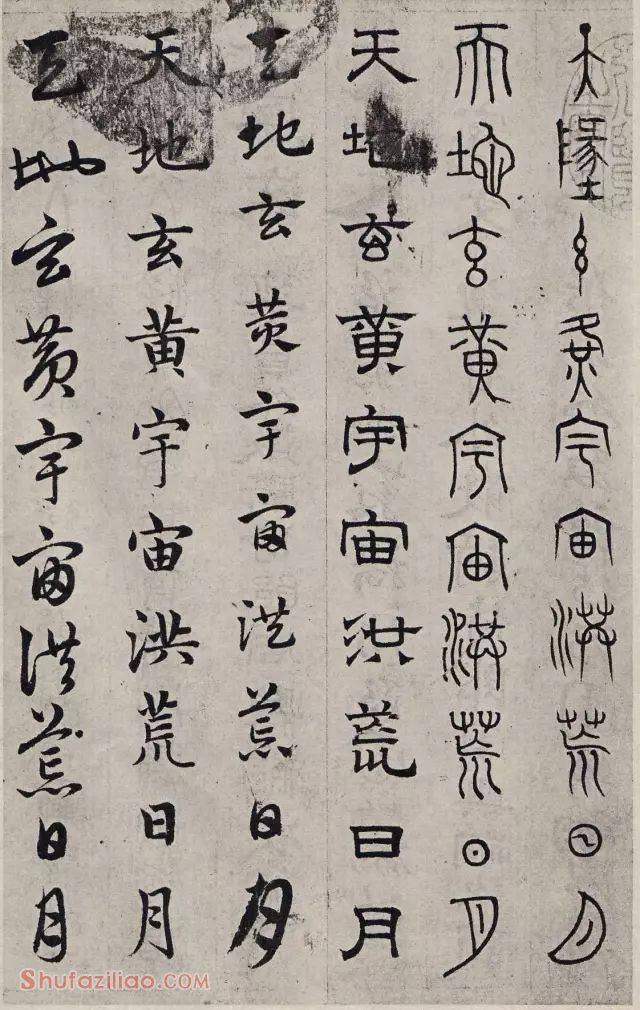 天地玄黄宇宙洪荒日月
天地玄黄宇宙洪荒日月
天地玄黄宇宙洪荒日月
天地玄黄宇宙洪荒日月
天地玄黄宇宙洪荒日月
天地玄黄宇宙洪荒日月
Shufaziliao.com